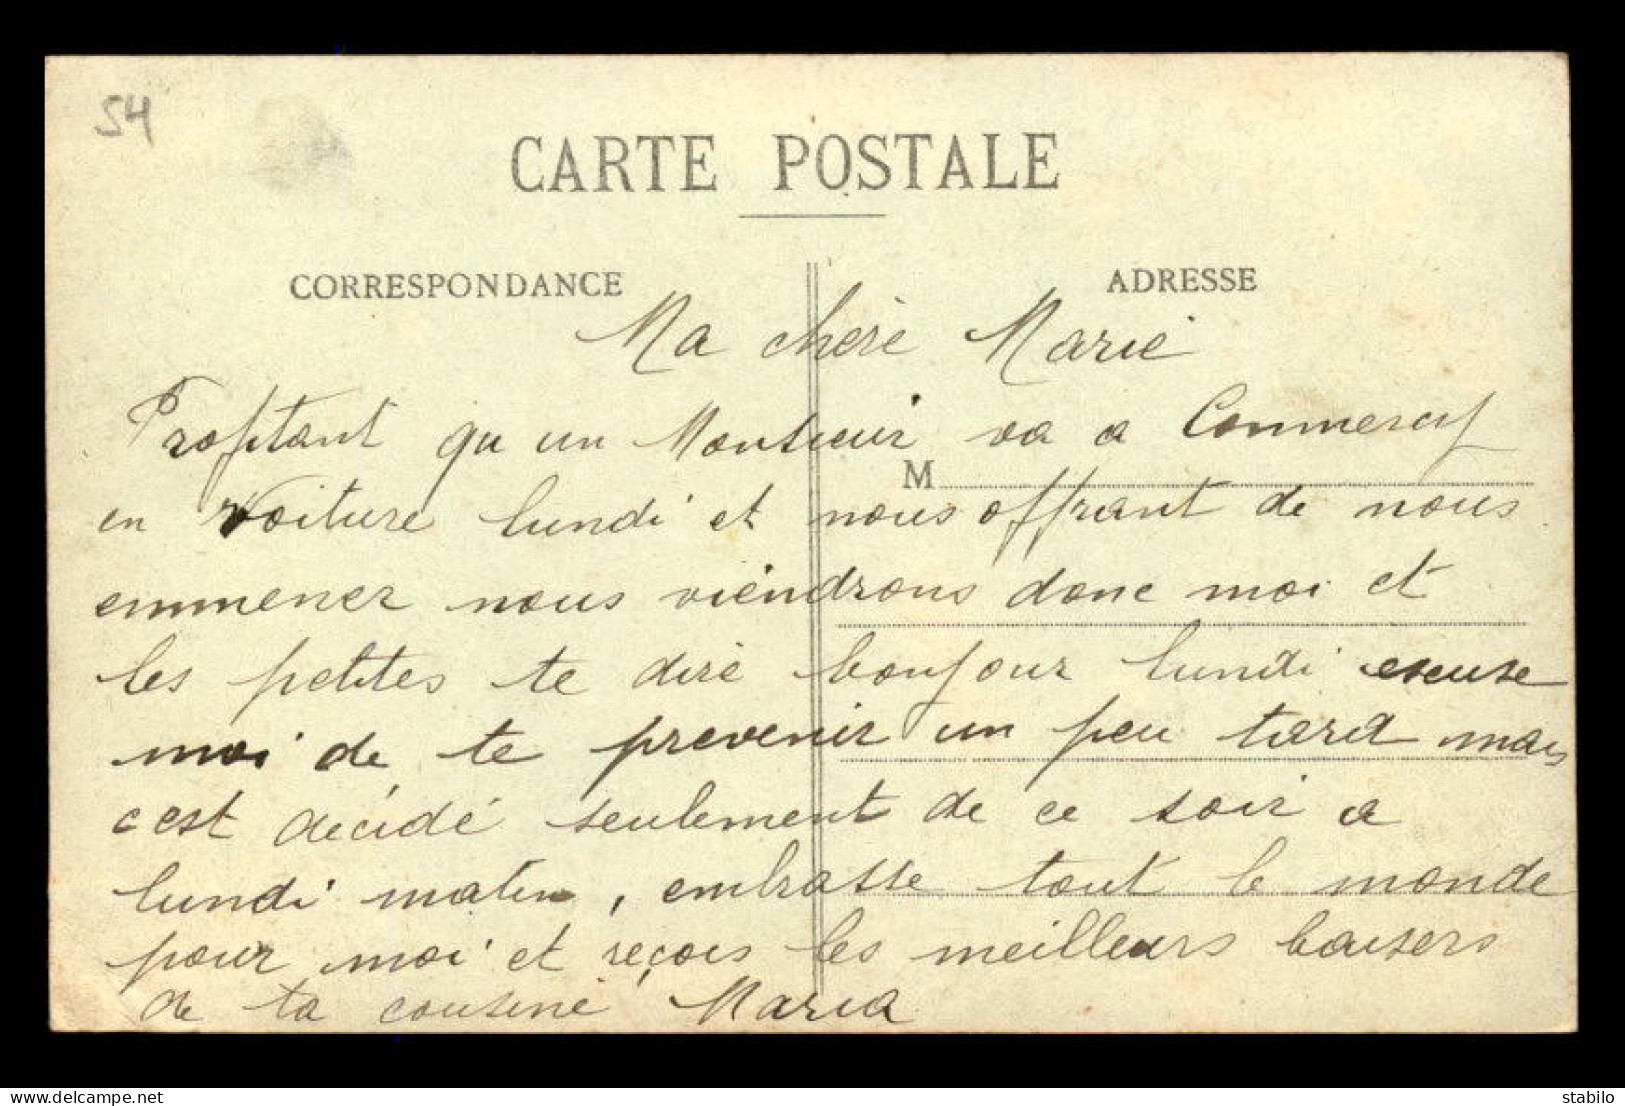 54
CARTE POSTALE
CORRESPONDANCE
ADRESSE
Ma chère Marie
Profitant qu un Monsieur va a Commercy
M
en voiture lundi et nous offrant de nous
emmener nous viendrons donc moi et
les petites te dire bonjour lundi excuse
moi de te prevenir un peu tard mais
c est décidé seulement de ce soir a
lundi matin, embrasse tout le monde
pour moi et reçois les meilleurs baisers
de ta cousine Maria
delcampe.net
stabilo